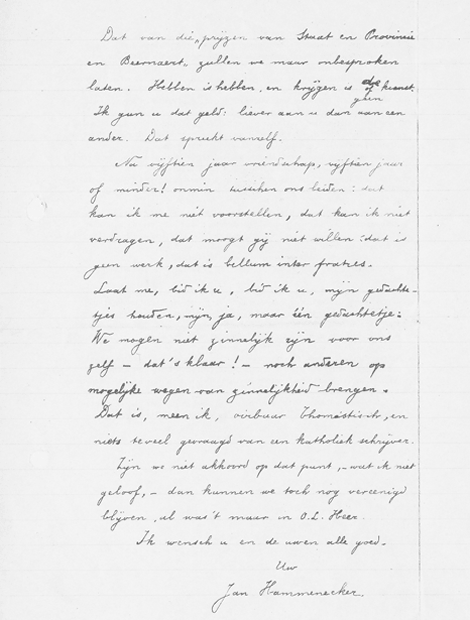 Dat van die "prijzen van Staat en Provincie
en Beernaert" zullen we maar onbesproken
laten. Hebben is hebben, en krijgen is de kunst.
Ik gun u dat geld: liever aan u dan aan een
ander. Dat spreekt vanzelf.
Na vijftien jaar vriendschap, vijftien jaar
of minder! onmin tusschen ons beiden: dat
kan ik me niet voorstellen, dat kan ik niet
verdragen, dat moogt gij niet willen: dat is
geen werk, dat is bellum inter fratres.
Laat me, bid ik u, bid ik u, mijn gedachte-
tjes houden, mijn, ja, maar één gedachtetje:
We mogen niet zinnelijk zijn voor ons
zelf – dat's klaar! – noch anderen op
mogelijke wegen van zinnelijkheid brengen.
Dat is, meen ik, oirbaar Thomistisch, en
niets te veel gevraagd van een katholiek schrijver.
Zijn we niet akkoord op dat punt, – wat ik niet
geloof, – dan kunnen we toch nog vereenigd
blijven, al was't maar in O.L. Heer.
Ik wensch u en de uwen alle goed.
Uw
Jan Hammenecker.